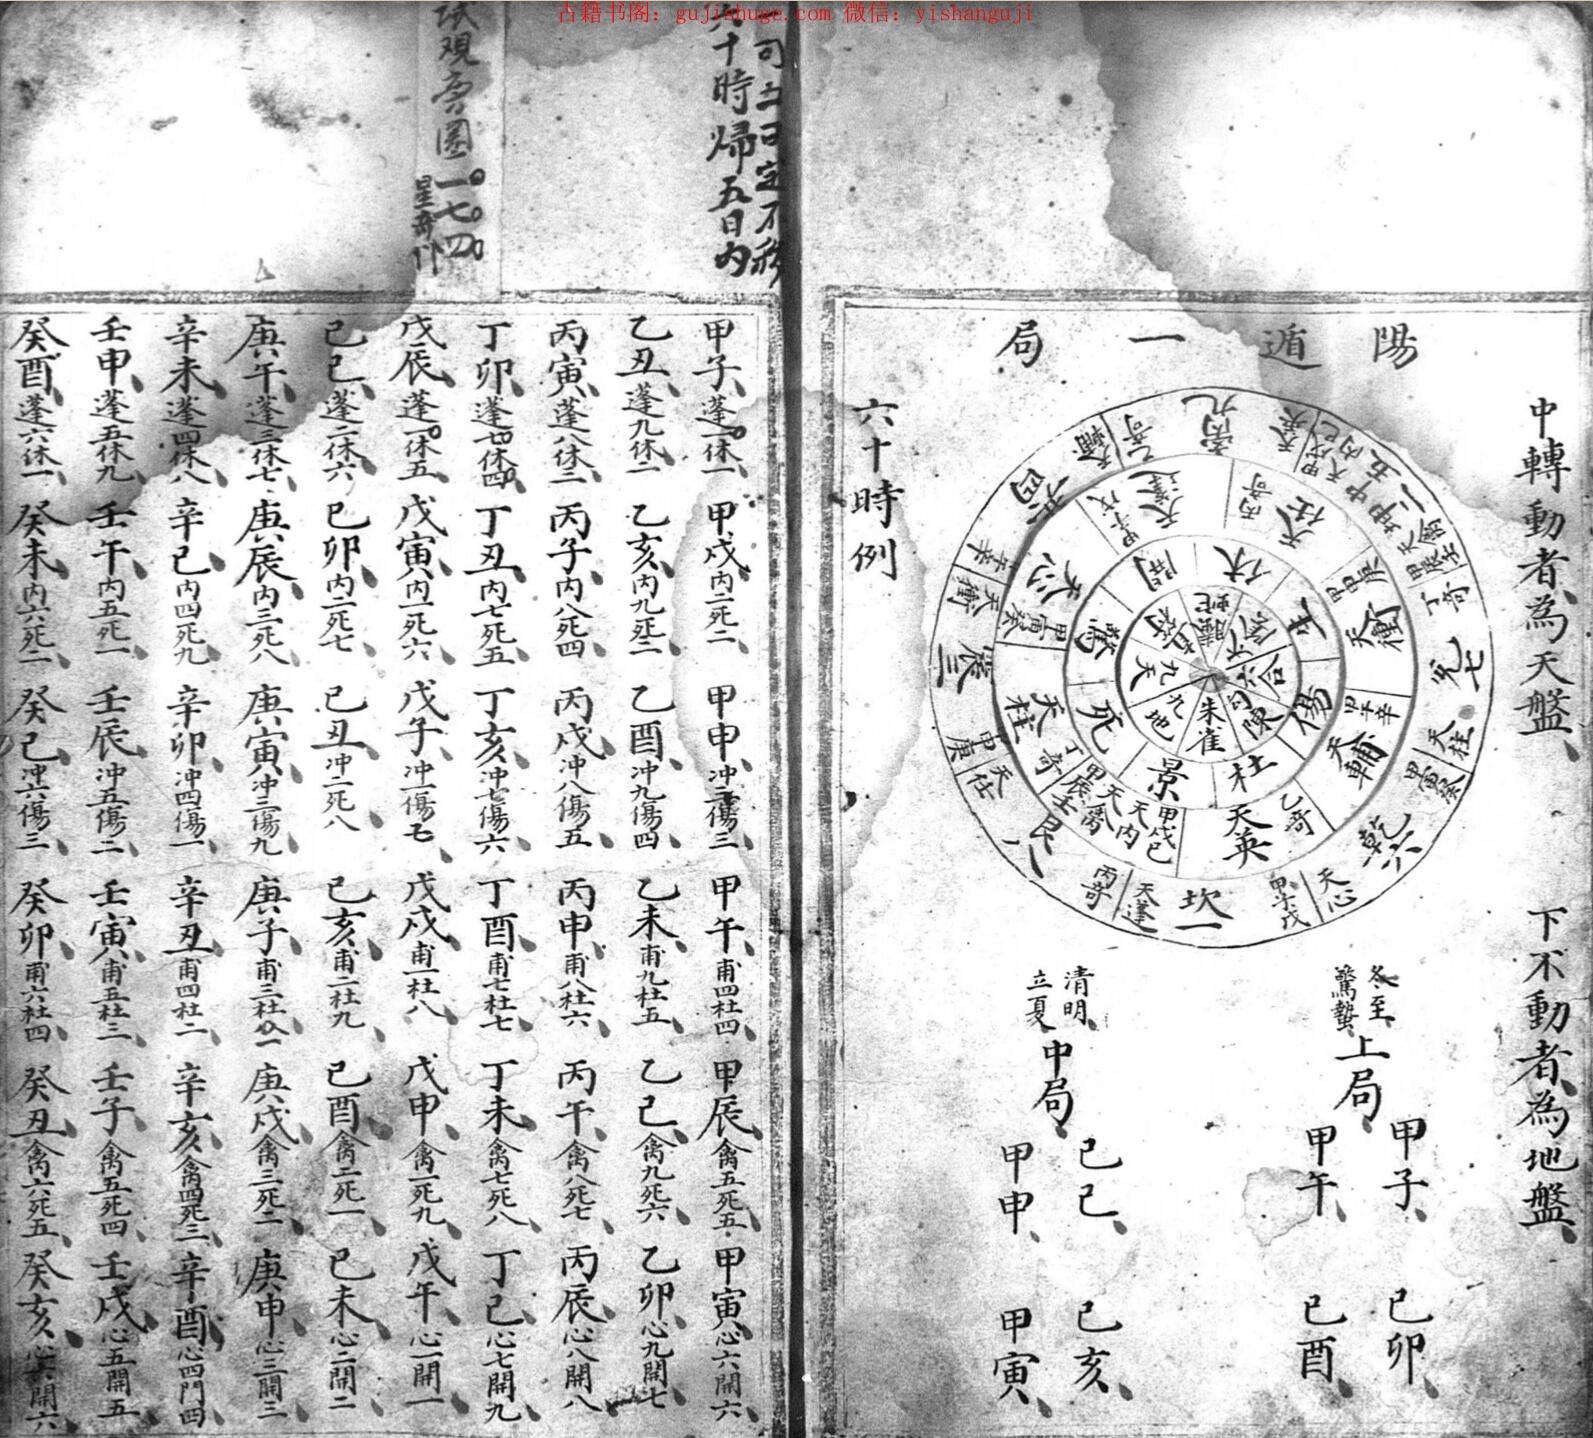 古籍书阁：gujishuge.com 微信：yishanguji
中轉動者為天盤、
下不動者、為地盤、
陽遁一局
九
丙奇
乙奇
天輔
四
甲午辛
天衝
震三
甲申庚
天任
艮八
丙奇
天蓬
坎一
甲子戊
天心
乾六
甲寅癸
天柱
兌七
丁奇
甲辰壬
天禽
坤二
中五
甲戌己
天内
天英
天蓬
甲子戊
天心
甲寅癸
天柱
丁奇
甲辰壬
天禽
天内
甲戌己
天英
乙奇
天輔
甲午辛
天衝
甲申庚
天任
丙奇
開
休
生
傷
杜
景
死
驚
直符
螣蛇
太陰
六合
勾陳
朱雀
九地
九天
冬至
驚蟄
上局、
甲子、己卯、
甲午、己酉、
清明
立夏
中局、
己巳、己亥、
甲申、甲寅、
六十時例
十時歸五日内
觀奇圖一七四
甲子、蓬一休一
甲戌、内二死二
甲申、冲三傷三
甲午、甫四杜四
甲辰、禽五死五
甲寅、心六開六
乙丑、蓬九休二
乙亥、内九死二
乙酉、冲九傷四
乙未、甫九杜五
乙巳、禽九死六
乙卯、心九開七
丙寅、蓬八休三
丙子、内八死四
丙戌、冲八傷五
丙申、甫八杜六
丙午、禽八死七
丙辰、心八開八
丁卯、蓬七休四
丁丑、内七死五
丁亥、冲七傷六
丁酉、甫七杜七
丁未、禽七死八
丁巳、心七開九
戊辰、蓬一休五
戊寅、内一死六
戊子、冲一傷七
戊戌、甫一杜八
戊申、禽一死九
戊午、心一開一
己巳、蓬二休六
己卯、内二死七
己丑、冲二死八
己亥、甫二杜九
己酉、禽二死一
己未、心二開二
庚午、蓬三休七
庚辰、内三死八
庚寅、冲三傷九
庚子、甫三杜一
庚戌、禽三死二
庚申、心三開三
辛未、蓬四休八
辛巳、内四死九
辛卯、冲四傷一
辛丑、甫四杜二
辛亥、禽四死三
辛酉、心四門四
壬申、蓬五休九
壬午、内五死一
壬辰、冲五傷二
壬寅、甫五杜三
壬子、禽五死四
壬戌、心五開五
癸酉、蓬六休一
癸未、内六死二
癸巳、冲六傷三
癸卯、甫六杜四
癸丑、禽六死五
癸亥、心六開六